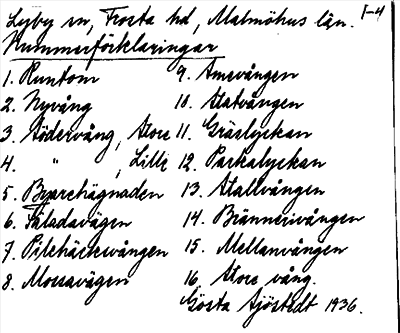 Lyby sn, Frosta hd, Malmöhus län. 1-4
Nummerförklaringar
1. Runtom
2. Nyvång
3. Södervång, Store
4. " , Lille
5. Byarehägnaden
6. Fäladavägen
7. Pilehäcksvången
8. Mossavägen
9. Amevången
10. Slätvången
11. Gräslyckan
12. Parkalyckan
13. Stallvången
14. Brännerivången
15. Mellanvången
16. Store vång.
Gösta Sjöstedt 1936.